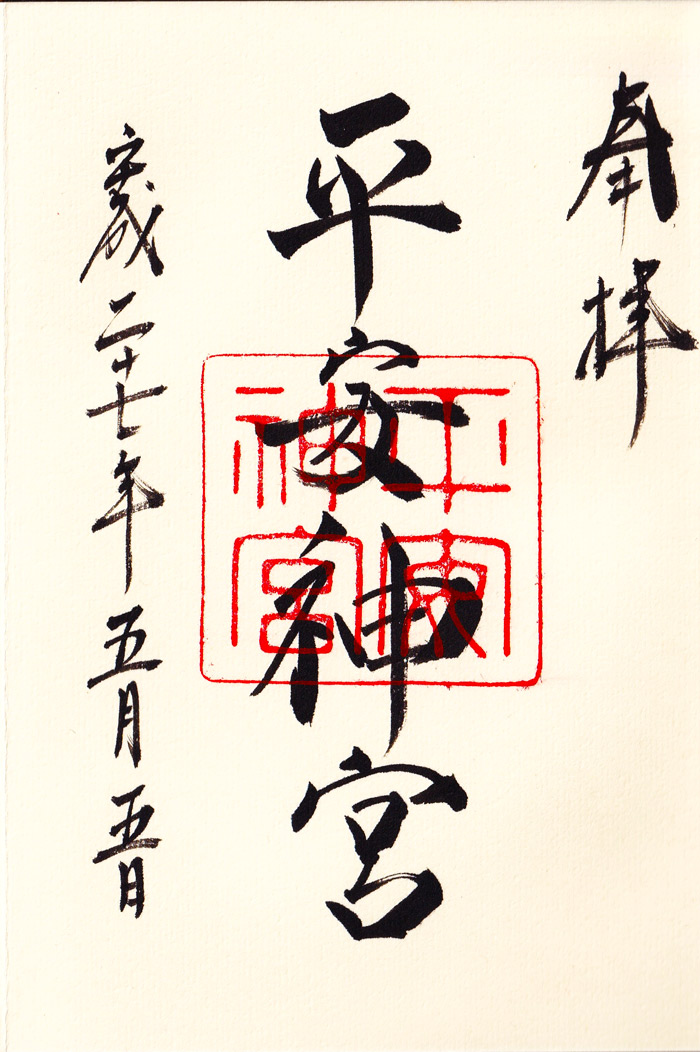 奉拝
平安神宮
平安神宮
平成二十七年五月五日